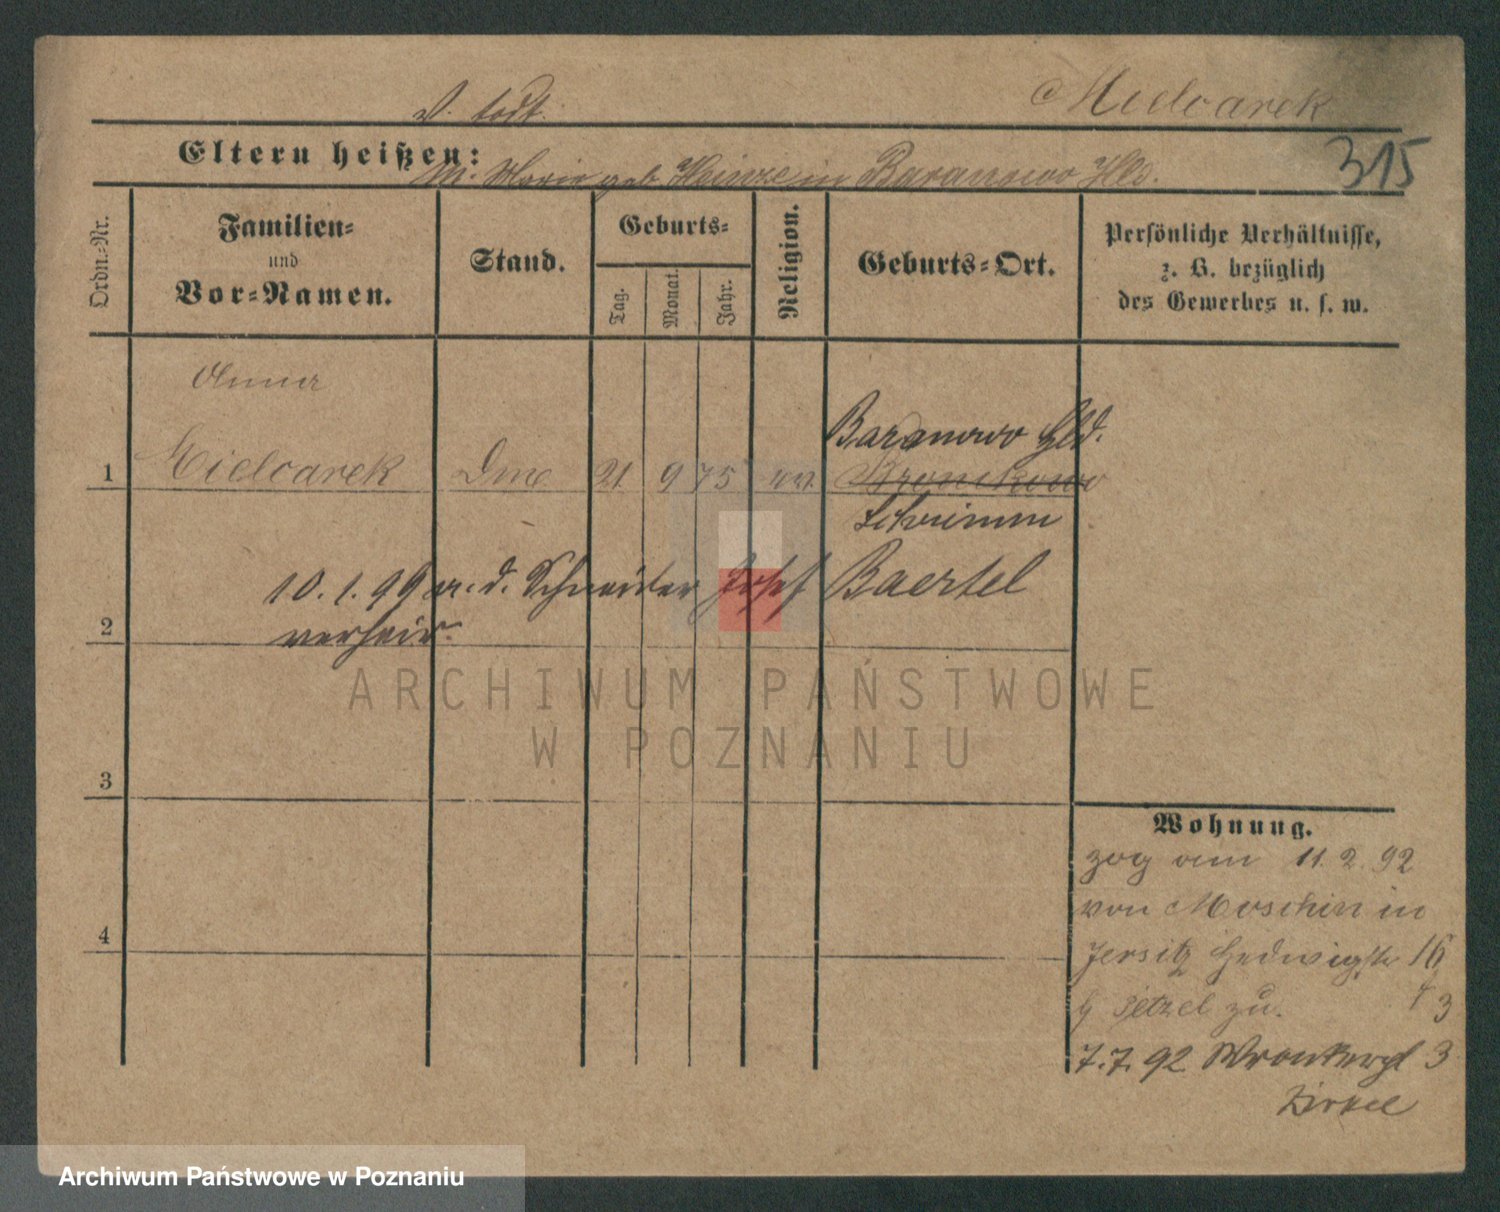 Mielcarek
V. todt.
Eltern heißen:
M. Marie geb. Heinze in Baranowo Hld.
315
Ordn.-Nr.
Familien-
und
Vor-Namen.
Stand.
Geburts-
Tag.
Monat.
Jahr.
Religion.
Geburts-Ort.
Persönliche Verhältnisse,
z. B. bezüglich
des Gewerbes u. s. w.
Anna
Baranowo Hld.
1 Mielcarek Dme 21 9 75 ev. Bronikowo
Schrimm
10.1.99 m. d. Schneider Josef Baertel
2 verheir.
ARCHIWUM PAŃSTWOWE
W POZNANIU
3
Wohnung.
zog am 11.2.92
von Moschin in
4
Jersitz Hedwigstr 16
b Petzel zu.
7.7.92 Wronkerpl 3
Zirkel
Archiwum Państwowe w Poznaniu